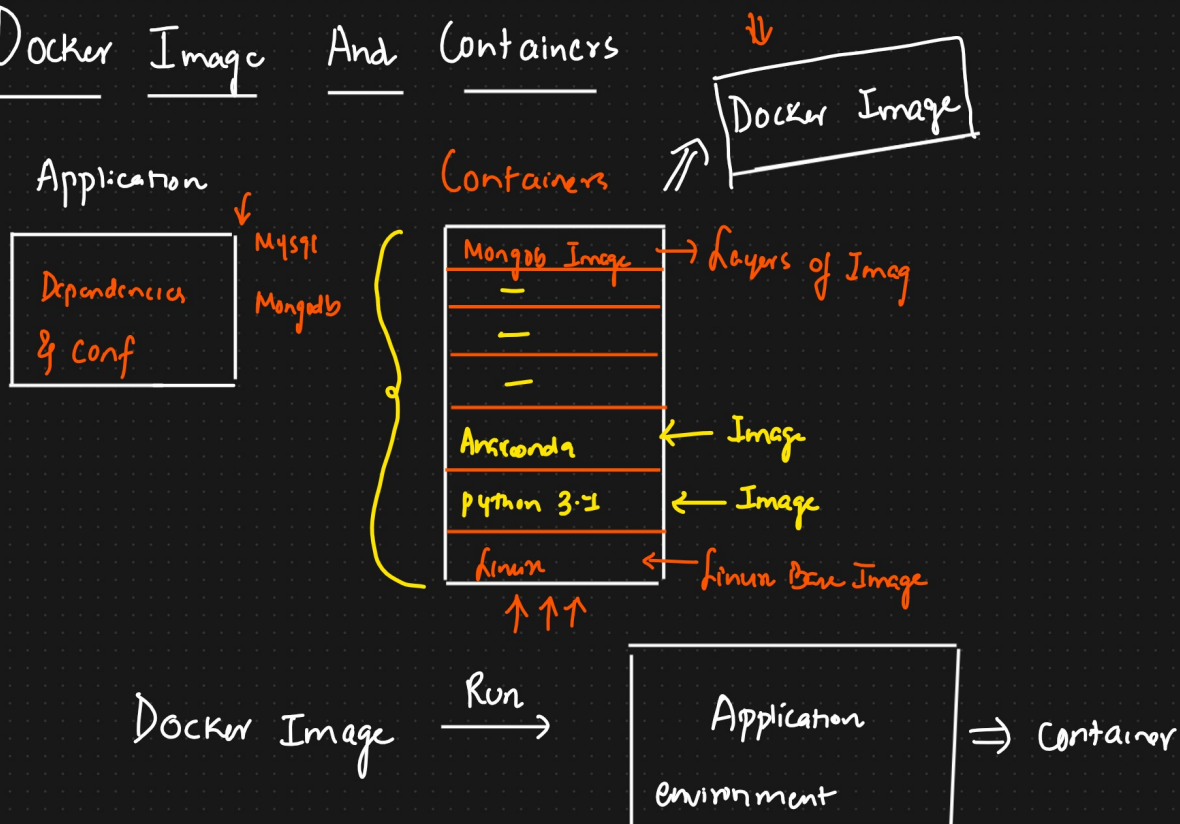 Docker Image And Containers
Docker Image
Application
Containers
Mysql
Mongodb
Dependencies
& Conf
Mongodb Image
Layers of Imag
Anaconda
Image
python 3.1
Image
Linux
Linux Base Image
Docker Image
Run
Application
environment
Container